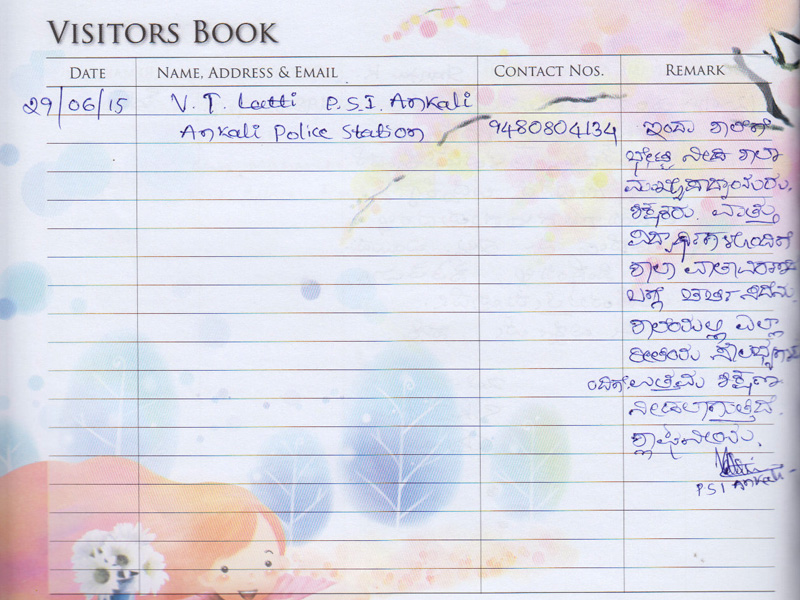 VISITORS BOOK
DATE NAME, ADDRESS & EMAIL CONTACT NOS. REMARK
29/06/15 V. T. Latti P.S.I. Ankali
Ankali Police Station 9480804134 ಇಂದು ಶಾಲೆಗೆ
ಭೇಟ್ಟಿ ನೀಡಿ ಶಾಲಾ
ಮುಖ್ಯೋಪಾಧ್ಯಾಯರು.
ಶಿಕ್ಷಕರು. ಮತ್ತು
ವಿದ್ಯಾರ್ಥಿಗಳೊಂದಿಗೆ
ಶಾಲಾ ವಾತಾವರಣ
ಬಗ್ಗೆ ಚರ್ಚಿಸಿದೆನು.
ಶಾಲೆಯಲ್ಲಿ ಎಲ್ಲಾ
ರೀತಿಯ ಸೌಲಭ್ಯಗಳೊ
ಂದಿಗೆ ಉತ್ತಮ ಶಿಕ್ಷಣ
ನೀಡಲಾಗುತ್ತಿದೆ.
ಶ್ಲಾಘನೀಯ.
PSI Ankali